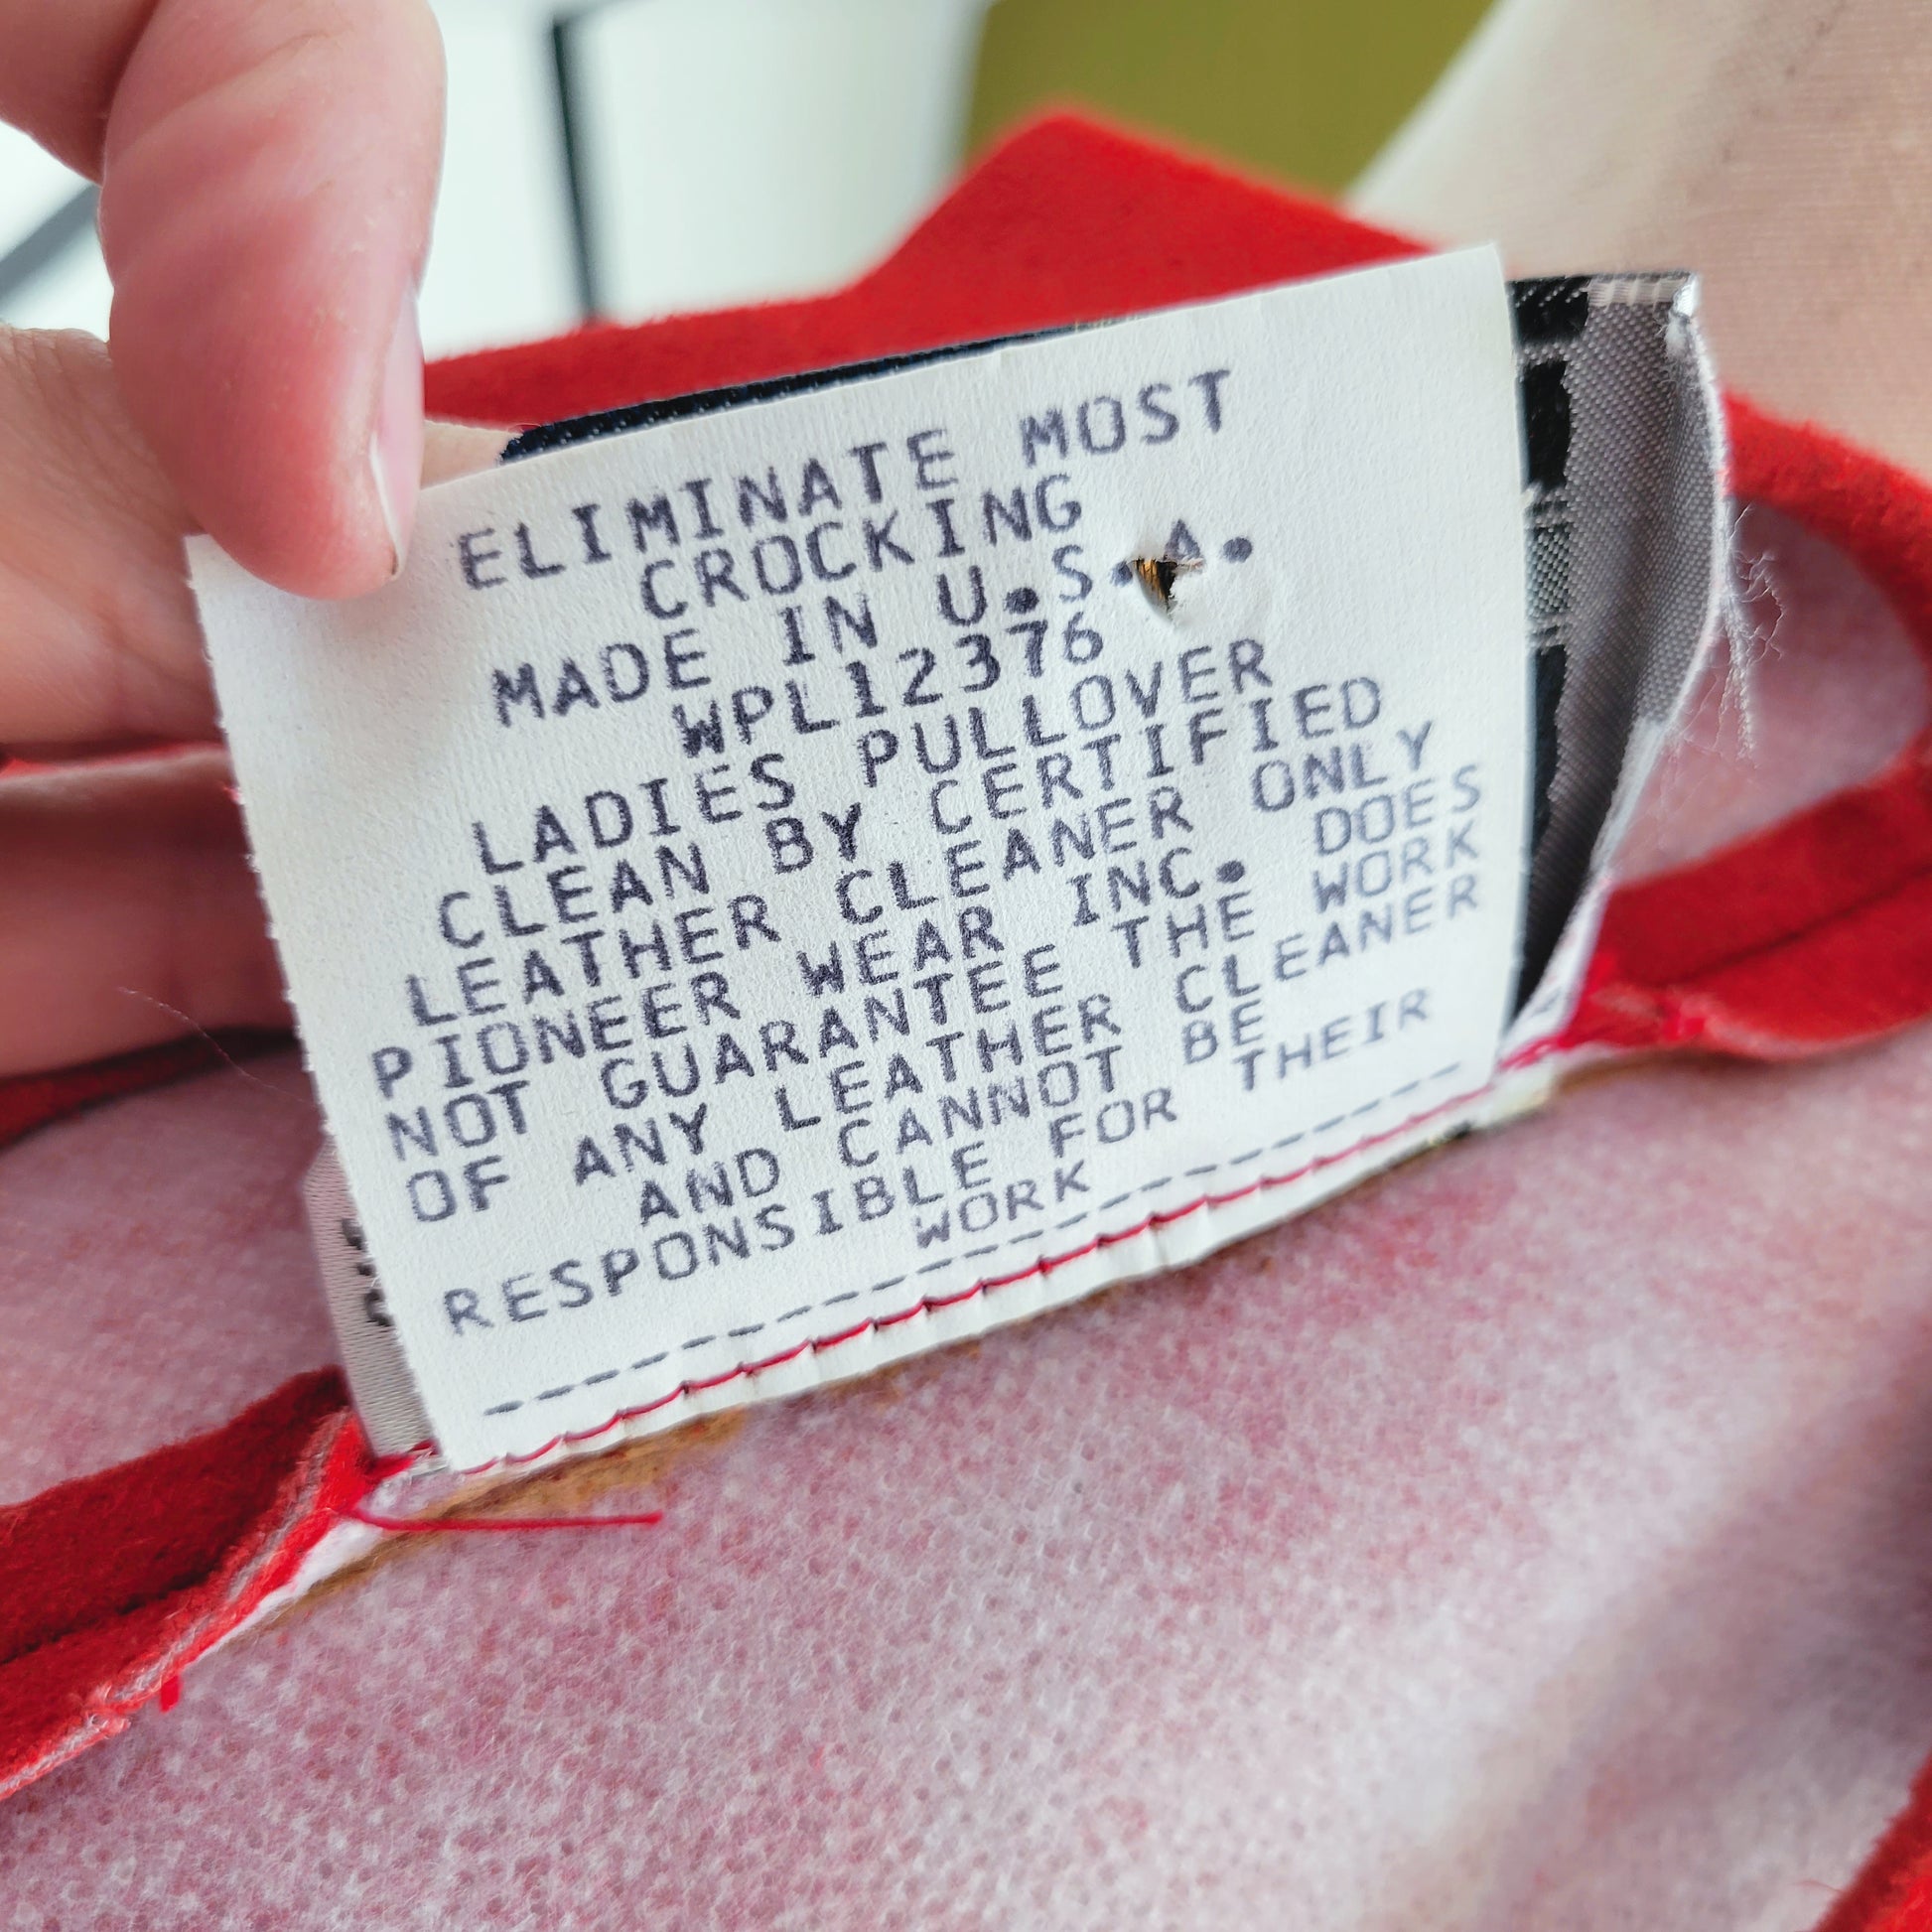 ELIMINATE MOST
CROCKING
MADE IN U.S.A.
WPL12376
LADIES PULLOVER
CLEAN BY CERTIFIED
LEATHER CLEANER ONLY
PIONEER WEAR INC. DOES
NOT GUARANTEE THE WORK
OF ANY LEATHER CLEANER
AND CANNOT BE
RESPONSIBLE FOR THEIR
WORK